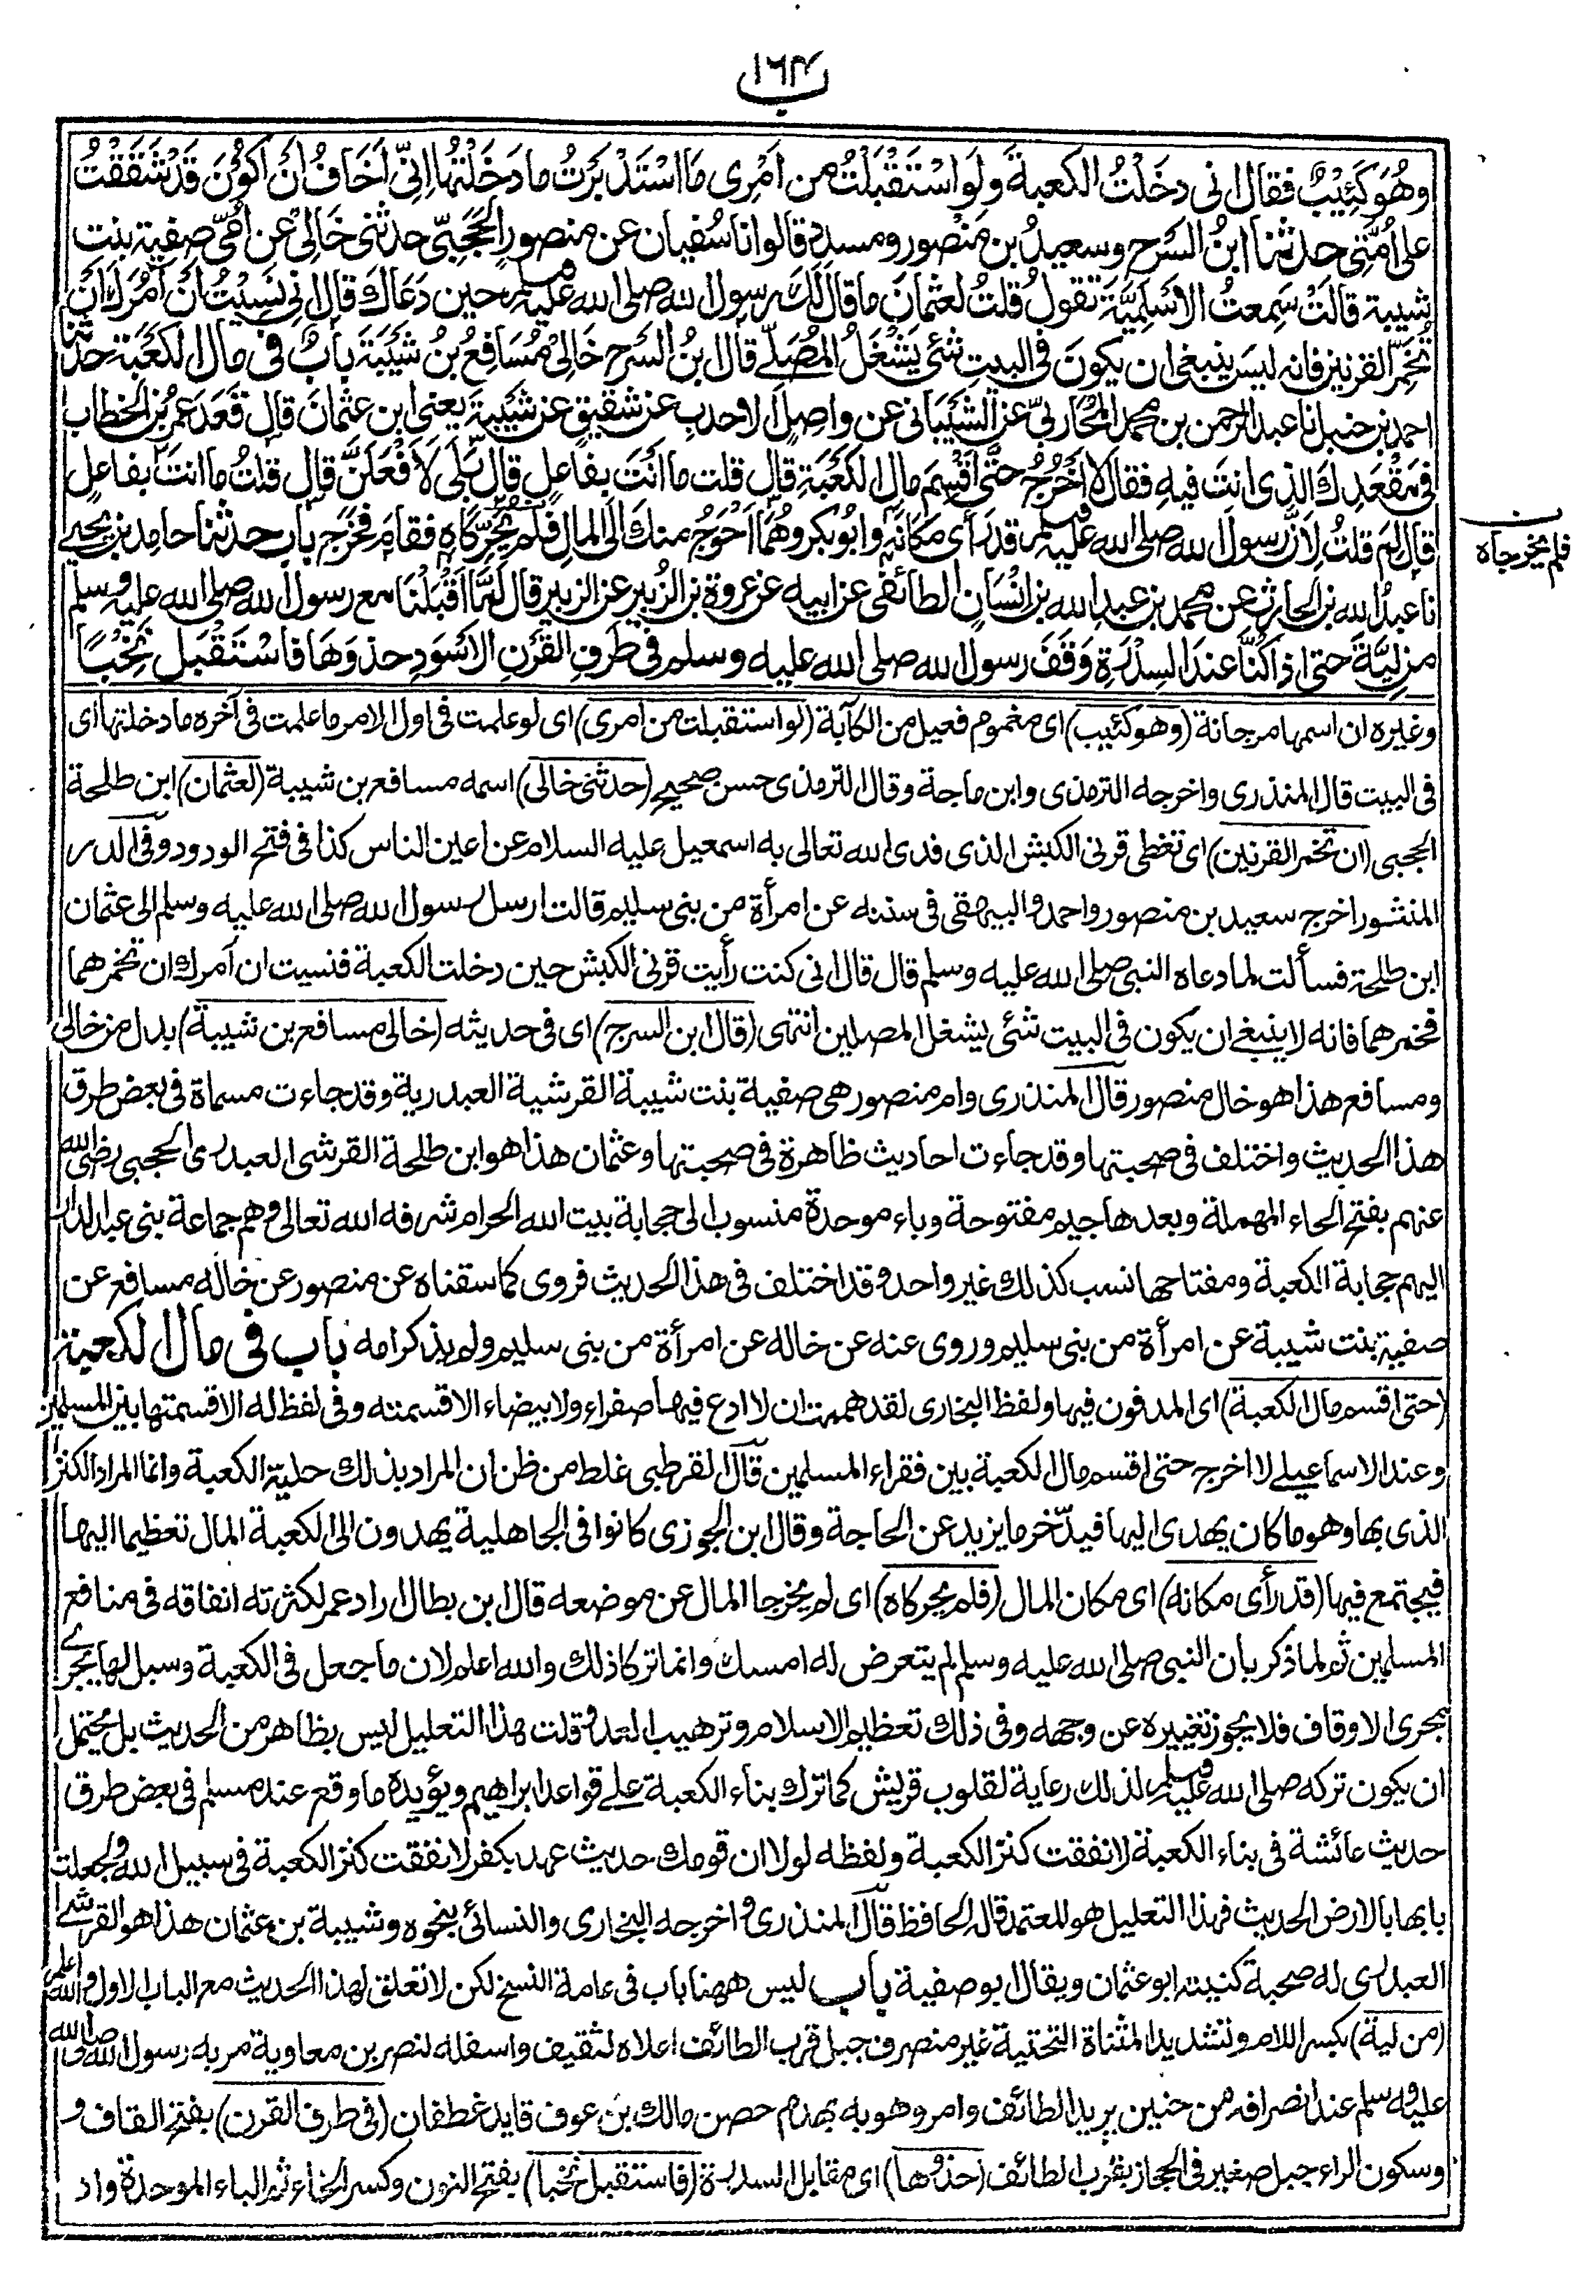 ١٦٣
وَهُوَ كَئِيْبٌ فقال انى دخَلْتُ الكعبةَ ولَوِ اسْتَقْبَلْتُ من اَمْرِى مَا اسْتَدْبَرْتُ ما دَخَلْتُها اِنِّى اَخَافُ اَنْ اَكُوْنَ قَدْ شَقَقْتُ
على اُمَّتِى حدثنا ابنُ السَّرحِ وسعيدُ بن منصور ومسدد قالوا نا سُفيان عن منصورٍ الحَجَبِىّ حدثنى خَالِىْ عن اُمِّى صفية بنت
شيبة قالَتْ سَمِعتُ الاَسْلَمِيَّةَ تقولُ قلتُ لعثمانَ ما قال لَكَ رسول الله صلى الله عليه وسلم حين دَعَاكَ قال انى نَسِيْتُ اَنْ اٰمُرَكَ اَنْ
تُخَمِّرَ القرنين فانه ليس ينبغى ان يكونَ فى البيتِ شئٌ يَشْغَلُ المُصَلّى قال ابنُ السَّرح خَالِىْ مُسَافِعُ بنُ شَيْبَةَ بابٌ فى مال الكَعْبَةِ حدثنا
احمد بن حنبل نا عبد الرحمن بن محمد المُحَارِبىّ عن الشَّيْبَانى عن واصِلٍ الاحدبِ عن شقيقٍ عن شَيْبَةَ يعنى ابن عثمانَ قال قَعَدَ عمرُ بن الخطاب
فى مَقْعَدِكَ الذى انتَ فيه فقال لا اَخْرُجُ حتّٰى اَقْسِمَ مال الكَعْبَةِ قال قلت ما اَنْتَ بفاعلٍ قال بَلٰى لَاَفْعَلَنَّ قال قلتُ ما انتَ بفاعلٍ
قال لِمَ قلتُ لِاَنَّ رسول الله صلى الله عليه وسلم قد رَأى مَكَانَهُ وابُو بكر وهُمَا اَحْوَجُ منك الى المالِ فلم يُحَرِّكَاهُ فقامَ فخرَجَ بابٌ حدثنا حامد بن يحيى
نا عبدُ الله بن الحارثِ عن محمد بن عبدِ الله بن اِنْسَانٍ الطائفى عن ابيه عن عروة بن الزُّبير عن الزبير قال لَمَّا اَقْبَلْنَا مع رسول الله صلى الله عليه وسلم
من لِيَّةَ حتى اذا كُنَّا عندَ السِّدْرَةِ وَقَفَ رسول الله صلى الله عليه وسلم فى طَرَفِ القَرْنِ الاَسْوَدِ حذوَهَا فاسْتَقْبَلَ نَخِبًا
فلم يخرجاه
وغيره ان اسمها مرجانة (وهو كئيب) اى مغموم فعيل من الكآبة (لو استقبلت من امرى) اى لو علمت فى اول الامر ما علمت فى آخره ما دخلتها اى
فى البيت قال المنذرى واخرجه الترمذى وابن ماجة وقال الترمذى حسن صحيح (حدثنى خالى) اسمه مسافع بن شيبة (لعثمان) ابن طلحة
الحجبى (ان تخمر القرنين) اى تغطى قرنى الكبش الذى فدى الله تعالى به اسمعيل عليه السلام عن اعين الناس كذا فى فتح الودود وفى الدر
المنثور اخرج سعيد بن منصور واحمد والبيهقى فى سننه عن امرأة من بنى سليم قالت ارسل رسول الله صلى الله عليه وسلم الى عثمان
ابن طلحة فسألت لما دعاه النبى صلى الله عليه وسلم قال قال انى كنت رأيت قرنى الكبش حين دخلت الكعبة فنسيت ان آمرك ان تخمرهما
فخمرهما فانه لا ينبغى ان يكون فى البيت شئ يشغل المصلين انتهى (قال ابن السرح) اى فى حديثه (خالى مسافع بن شيبة) بدل من خالى
ومسافع هذا هو خال منصور قال المنذرى وام منصور هى صفية بنت شيبة القرشية العبدرية وقد جاءت مسماة فى بعض طرق
هذا الحديث واختلف فى صحبتها وقد جاءت احاديث ظاهرة فى صحبتها وعثمان هذا هو ابن طلحة القرشى العبدرى الحجبى رضى الله
عنهم بفتح الحاء المهملة وبعدها جيم مفتوحة وباء موحدة منسوب الى حجابة بيت الله الحرام شرفه الله تعالى وهم جماعة بنى عبد الدار
اليهم حجابة الكعبة ومفتاحها نسب كذلك غير واحد وقد اختلف فى هذا الحديث فروى كما سقناه عن منصور عن خاله مسافع عن
صفية بنت شيبة عن امرأة من بنى سليم وروى عنه عن خاله عن امرأة من بنى سليم ولم يذكر امه باب فى مال الكعبة
(حتى اقسم مال الكعبة) اى المدفون فيها ولفظ البخارى لقد هممت ان لا ادع فيها صفراء ولا بيضاء الا قسمته وفى لفظ له الا قسمتها بين المسلمين
وعند الاسماعيلى لا اخرج حتى اقسم مال الكعبة بين فقراء المسلمين قال القرطبى غلط من ظن ان المراد بذلك حلية الكعبة وانما المراد الكنز
الذى بها وهو ما كان يهدى اليها فيدّخر ما يزيد عن الحاجة وقال ابن الجوزى كانوا فى الجاهلية يهدون الى الكعبة المال تعظيما اليها
فيجتمع فيها (قد رأى مكانه) اى مكان المال (فلم يحركاه) اى لم يخرجا المال عن موضعه قال ابن بطال اراد عمر لكثرته انفاقه فى منافع
المسلمين ثم لما ذكر بان النبى صلى الله عليه وسلم لم يتعرض له امسك وانما تركا ذلك والله اعلم لان ما جعل فى الكعبة وسبل لها يجرى
مجرى الاوقاف فلا يجوز تغييره عن وجهه وفى ذلك تعظيم الاسلام وترهيب العدو قلت هذا التعليل ليس بظاهر من الحديث بل يحتمل
ان يكون تركه صلى الله عليه وسلم لذلك رعاية لقلوب قريش كما ترك بناء الكعبة على قواعد ابراهيم ويؤيده ما وقع عند مسلم فى بعض طرق
حديث عائشة فى بناء الكعبة لانفقت كنز الكعبة ولفظه لولا ان قومك حديث عهد بكفر لانفقت كنز الكعبة فى سبيل الله ولجعلت
بابها بالارض الحديث فهذا التعليل هو المعتمد قاله الحافظ قال المنذرى واخرجه البخارى والنسائى بنحوه وشيبة بن عثمان هذا هو القرشى
العبدرى له صحبة كنيته ابو عثمان ويقال ابو صفية باب ليس ههنا باب فى عامة النسخ لكن لا تعلق لهذا الحديث مع الباب الاول والله اعلم
(من لية) بكسر اللام وتشديد المثناة التحتية غير منصرف جبل قرب الطائف اعلاه لثقيف واسفله لنصر بن معاوية مر به رسول الله صلى الله
عليه وسلم عند انصرافه من حنين يريد الطائف وامر وهو به بهدم حصن مالك بن عوف قايد غطفان (فى طرف القرن) بفتح القاف و
وسكون الراء جبل صغير فى الحجاز بقرب الطائف (حذوها) اى مقابل السدرة (فاستقبل نخبا) بفتح النون وكسر الخاء ثم الباء الموحدة واد